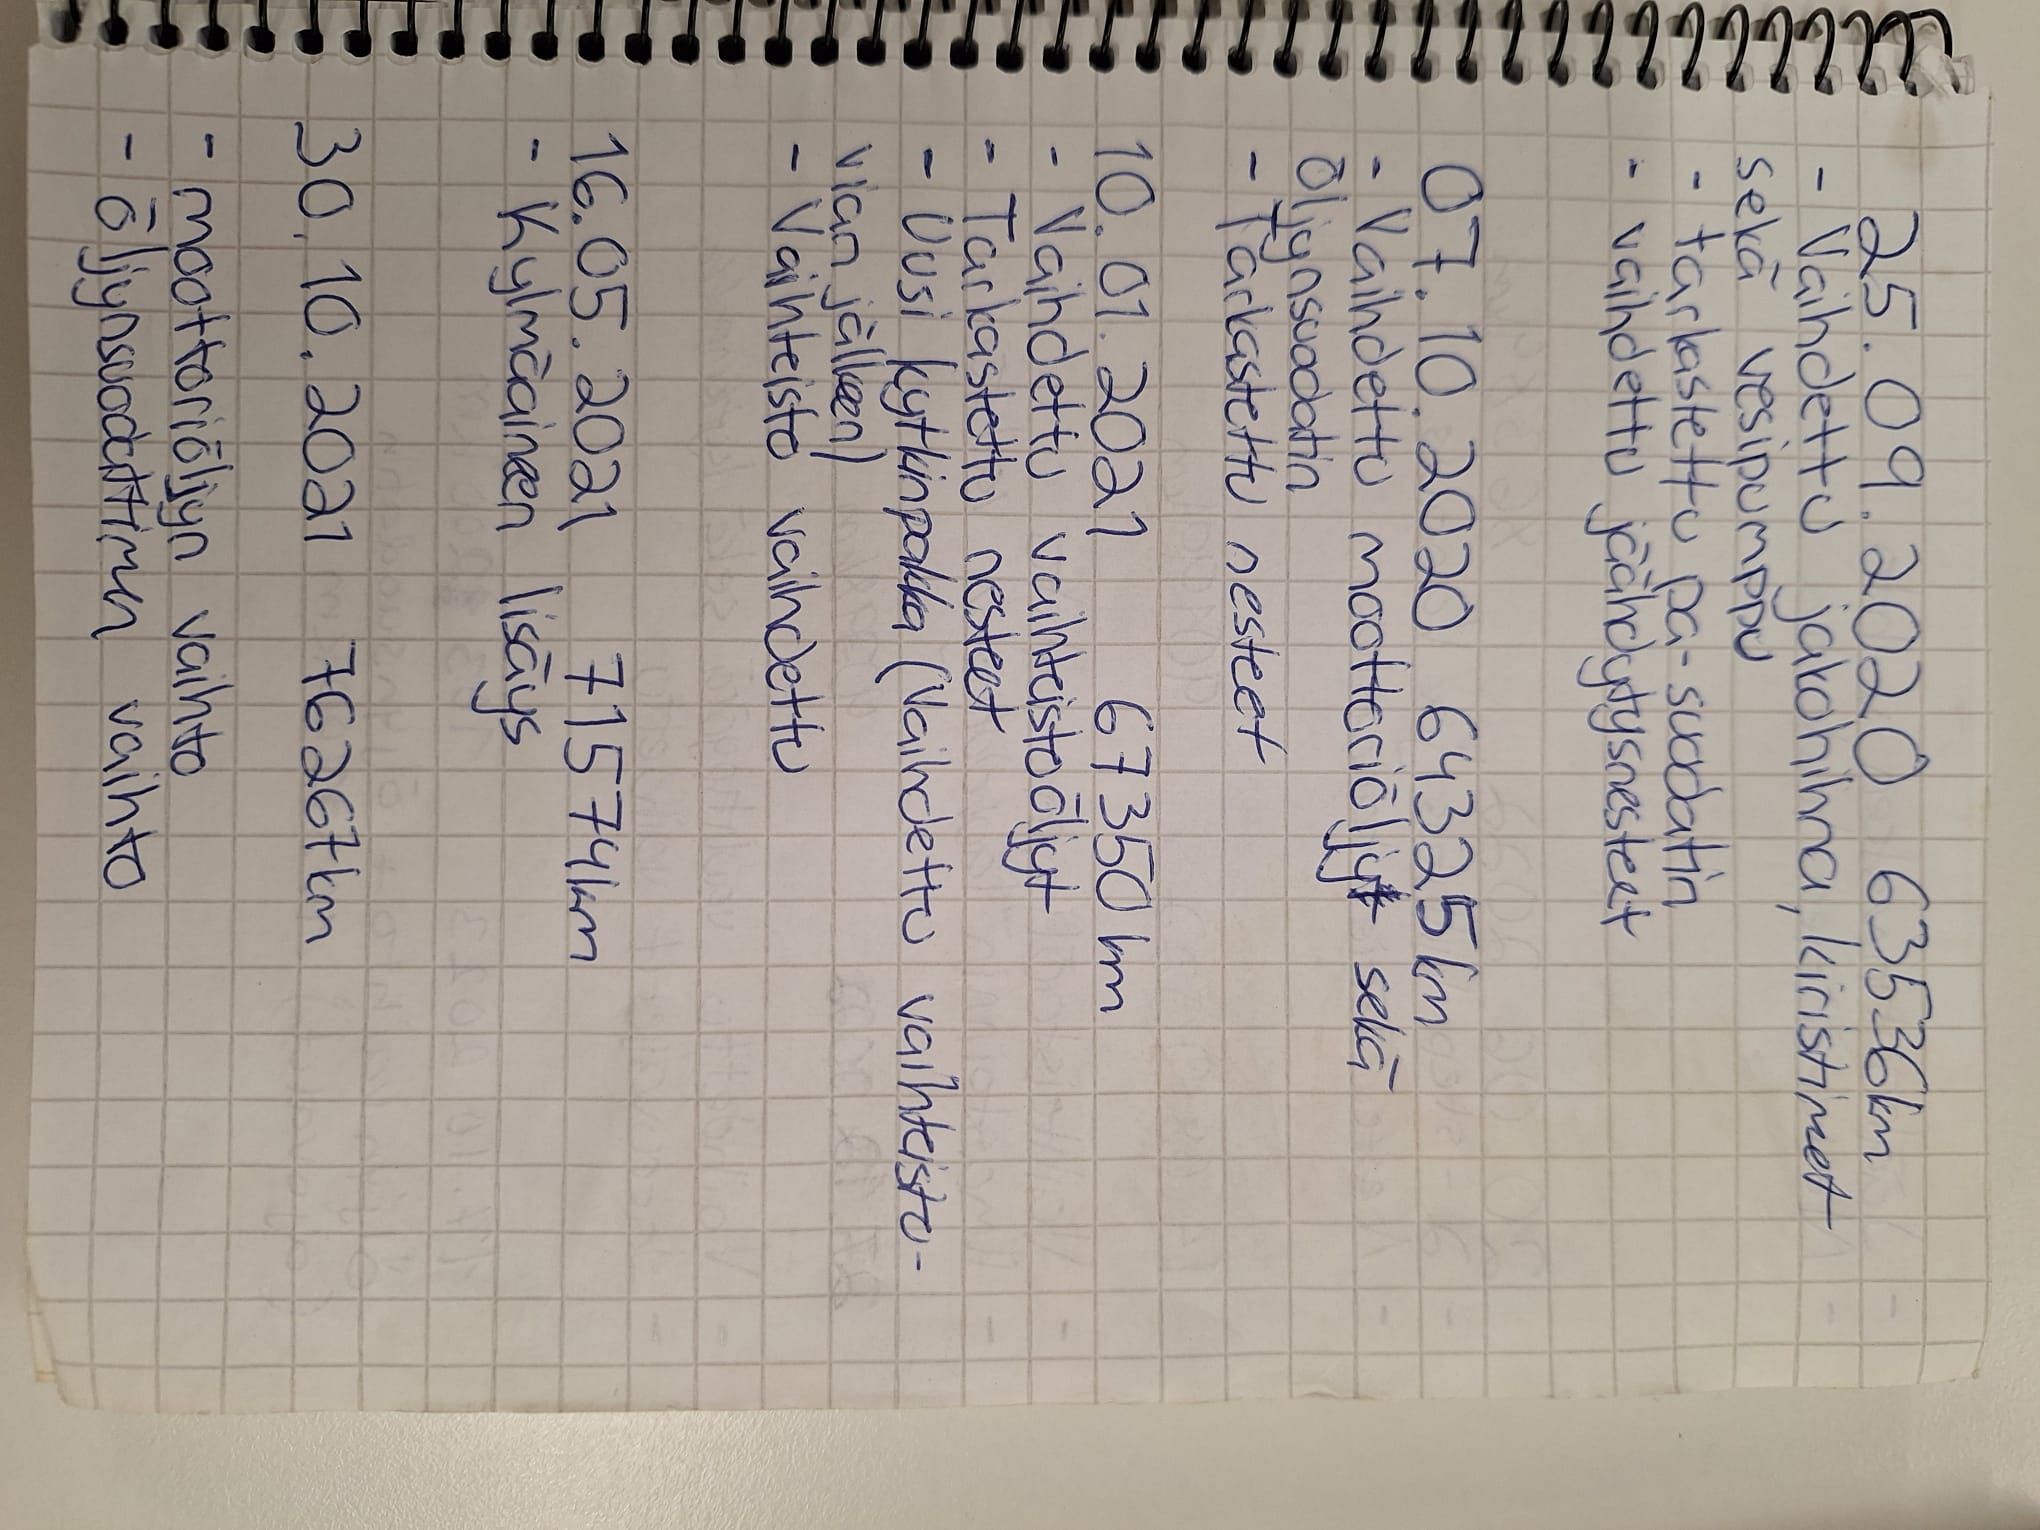 25.09.2020 63536km
- Vaihdettu jakohihna, kiristimet
sekä vesipumppu
- tarkastettu pa-suodatin
- vaihdettu jäähdytysnesteet
07.10.2020 64325km
- Vaihdettu moottoriöljyt sekä
öljynsuodatin
- Tarkastettu nesteet
10.01.2021 67350km
- Vaihdettu vaihteistoöljyt
- Tarkastettu nesteet
- Uusi kytkinpakka (Vaihdettu vaihteisto-
vian jälkeen)
- Vaihteisto vaihdettu
16.05.2021 71574km
- Kylmäaineen lisäys
30.10.2021 76267km
- moottoriöljyn vaihto
- öljynsuodattimen vaihto